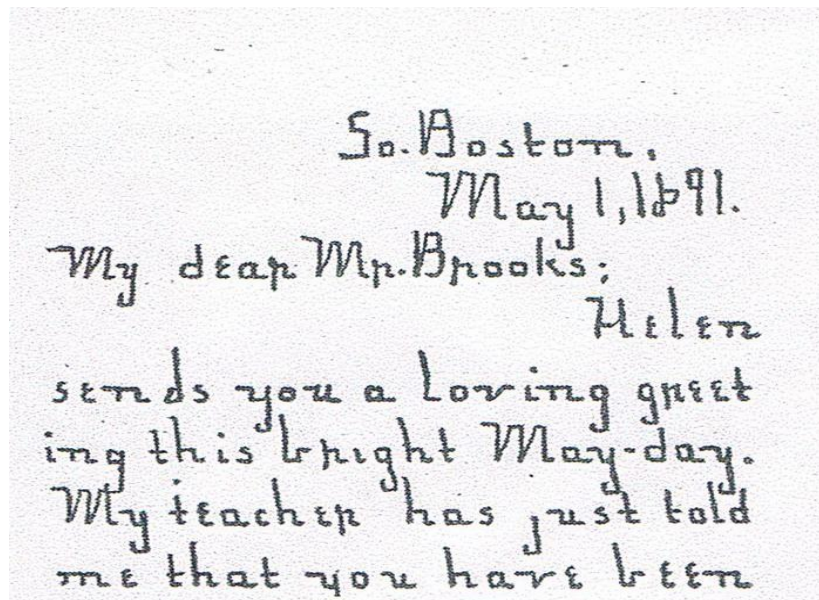 So. Boston,
May 1, 1891.
My dear Mr. Brooks;
Helen
sends you a loving greet
ing this bright May-day.
My teacher has just told
me that you have been